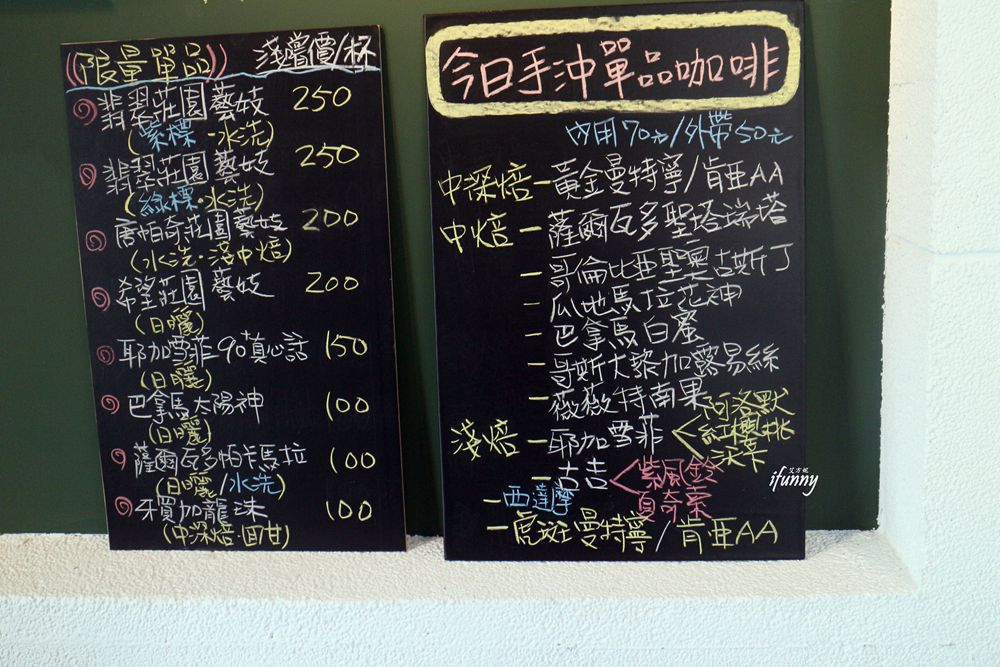 限量單品 淺嚐價/杯
翡翠莊園藝妓 250
(紫標·水洗)
翡翠莊園藝妓 250
(綠標·水洗)
唐帕奇莊園藝妓 200
(水洗·淺中焙)
希望莊園藝妓 200
(日曬)
耶加雪菲90+真心話 150
(日曬)
巴拿馬太陽神 100
(日曬)
薩爾瓦多帕卡馬拉 100
(日曬/水洗)
牙買加龍珠 100
(中深焙·回甘)
今日手沖單品咖啡
內用70元/外帶50元
中深焙－黃金曼特寧/肯亞AA
中焙－薩爾瓦多聖塔瑞塔
－哥倫比亞聖奧古斯丁
－瓜地馬拉花神
－巴拿馬白蜜
－哥斯大黎加露易絲
－薇薇特南果
淺焙－耶加雪菲 < 阿洛默
紅櫻桃
沃卡
－古吉 < 紫風鈴
夏奇索
－西達摩
－虎斑曼特寧/肯亞AA
艾方妮
ifunny